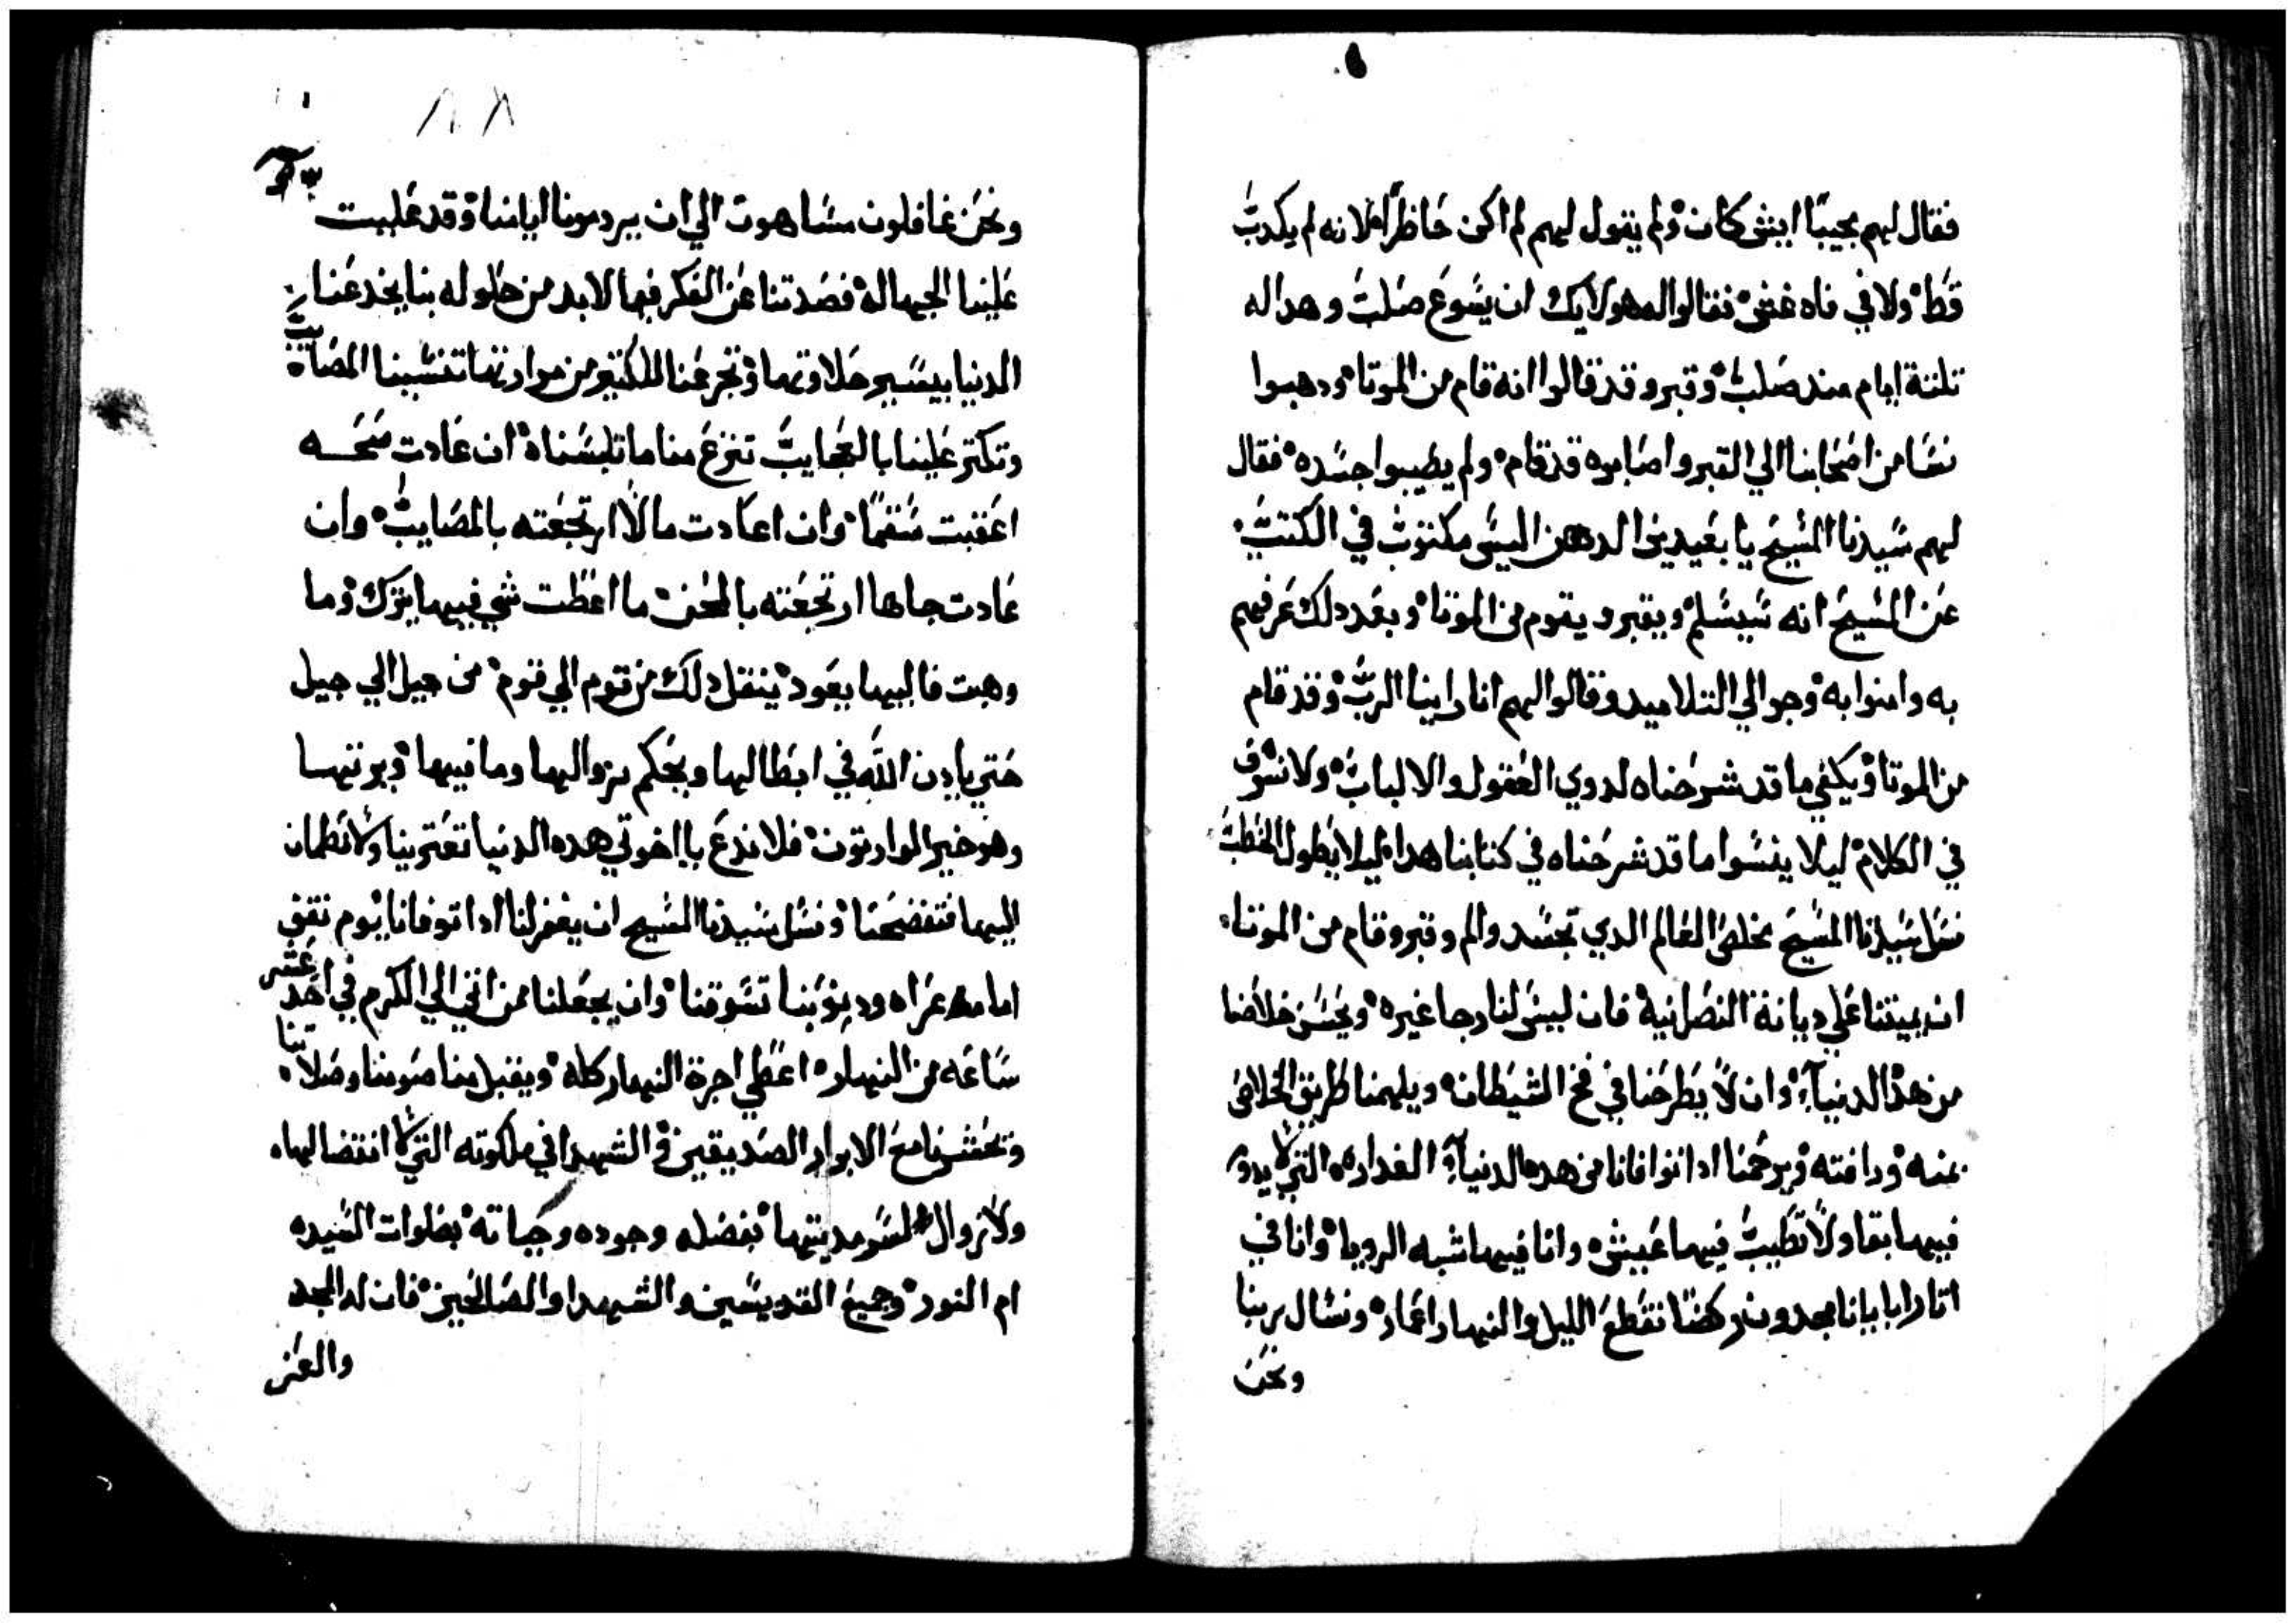 فقال لهم مجيبا ايش كان ولم يقول لهم لم اكن حاظرا لانه لم يكدب
قط ولا في فاه غش فقالوا له هولايك ان يسوع صلب وهدا له
تلتة ايام مند صلب وقبر وقد قالوا انه قام من الموتا ودهبوا
نسا من اصحابنا الي القبر واصابوه قد قام ولم يطيبوا جسده فقال
لهم سيدنا المسيح يا بعيدين الدهن اليس مكتوب في الكتب
عن المسيح انه سيسلم ويقبر ويقوم من الموتا وبعد دلك عرفهم
به وامنوا به وجوا الي التلاميد وقالوا لهم انا راينا الرب وقد قام
من الموتا ويكفي ما قد شرحناه لدوي العقول والالباب ولا نسرف
في الكلام ليلا ينسوا ما قد شرحناه في كتابنا هدا ليلا يطول الخطب
نسل سيدنا المسيح مخلص العالم الدي تجسد والم وقبر وقام من الموتا
ان يميتنا علي ديانة النصرانية فان ليس لنا رجا غيره ويحسن خلاصنا
من هده الدنيا وان لا يطرحنا في فخ الشيطان ويلهمنا طريق الخلاص
بمنه ورافته ويرحمنا ادا توافانا من هده الدنيا الغداره التي لا يدوم
فيها بقا ولا تطيب فيها عيش وانا فيها شبه الرويا وانا في
اتار ابايانا مجدون ركضا نقطع الليل والنهار اعمار ونسال ربنا
ونحن
ونحن غافلون مساهون الي ان يردمونا اياسا وقد غلبت
علينا الجهاله فصدتنا عن الفكر فيما لابد من حلوله بنا يخدعنا
الدنيا بيسير حلاوتها وتجرعنا الكتير من مرارتها تنشبنا المصايب
وتكتر علينا بالعجايب تنزع منا ما تلبسناه ان عادت سحه
اعقبت سقما وان اعادت مالا ارتجعته بالمصايب وان
عادت جاها ارتجعته بالمحن ما اعطت شي فيها يترك وما
وهبت فاليها يعود ينقل دلك من قوم الي قوم من جيل الي جيل
حتي يادن الله في ابطالها ويحكم بزوالها وما فيها ويرتها
وهو خير الوارتون فلا ندع يا اخوتي هده الدنيا تغتر بنا ولا نطمان
اليها فتفضحنا ونسل سيدنا المسيح ان يغفر لنا ادا توفانا يوم نقف
امامه عراه ودنوبنا تسوقنا وان يجعلنا ممن اتي الي الكرم في احد عشر
ساعه من النهار اعطي اجرة النهار كله ويقبل منا صومنا وصلاتنا
وتحشرنا مع الابرار الصديقين والشهدا في ملكوته التي لا انتضا لها
ولا زوال لسرمديتها بفضله وجوده وحياته بصلوات السيده
ام النور وجميع القديسين والشهدا والصالحين فان له المجد
والعز